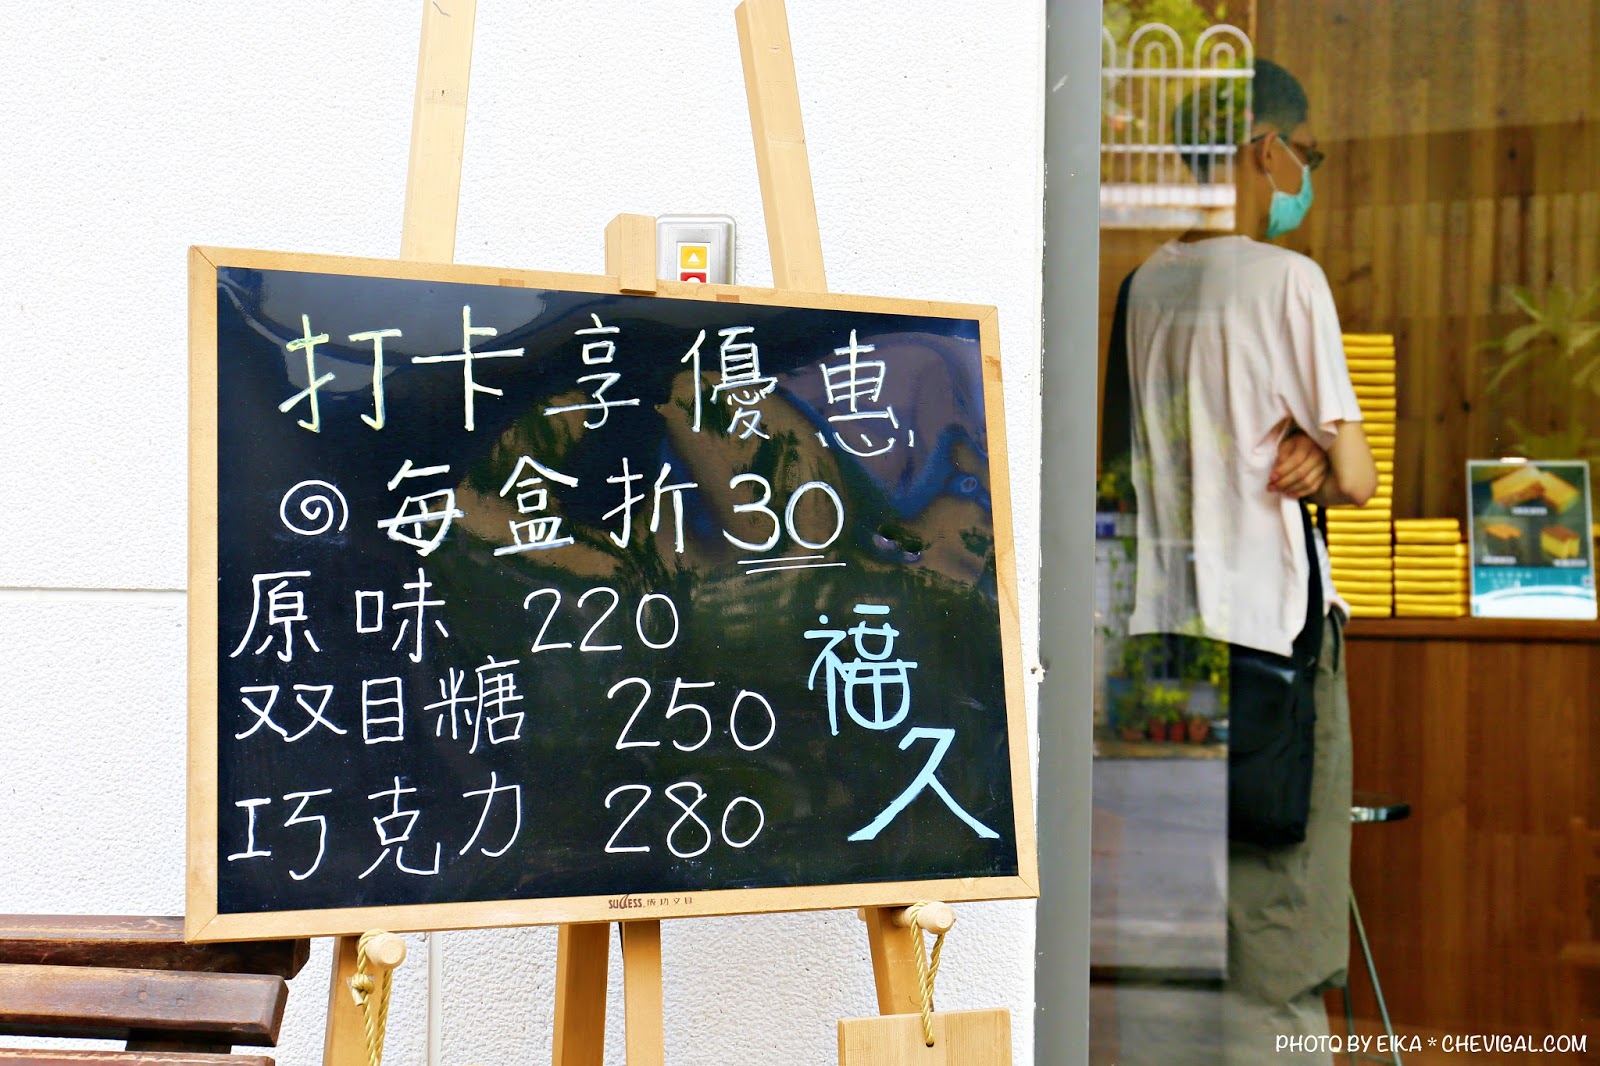 打卡享優惠
每盒折30
原味 220
双目糖 250
巧克力 280
福久
SUCCESS 成功文具
PHOTO BY EIKA * CHEVIGAL.COM